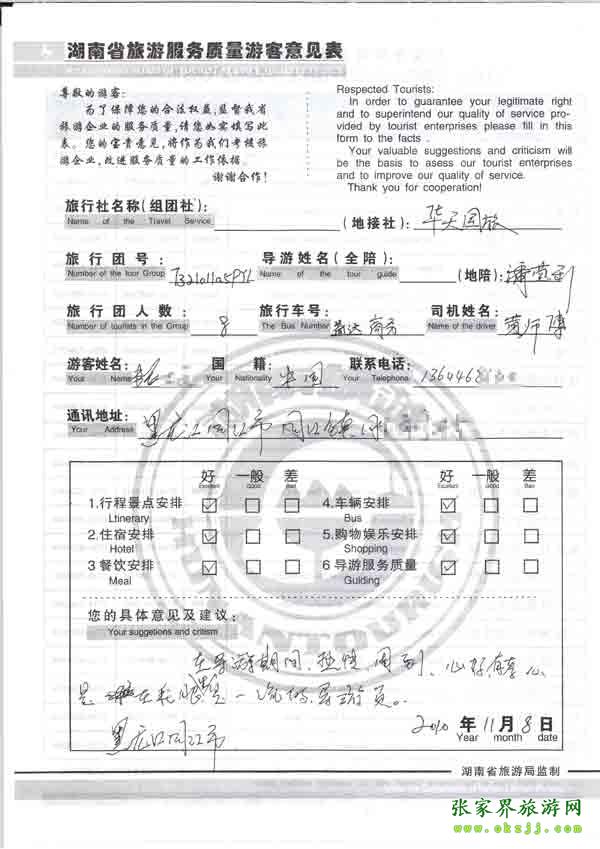 湖南省旅游服务质量游客意见表
尊敬的游客:
为了保障您的合法权益,监督我省
旅游企业的服务质量,请您如实填写此
表。您的宝贵意见,将作为我们考核旅
游企业,改进服务质量的工作依据。
谢谢合作!
Respected Tourists:
In order to guarantee your legitimate right
and to superintend our quality of service pro-
vided by tourist enterprises please fill in this
form to the facts .
Your valuable suggestions and criticism will
be the basis to asess our tourist enterprises
and to improve our quality of service.
Thank you for cooperation!
旅行社名称(组团社): (地接社): 华天国旅
Name of the Travel Service
旅行团号: 导游姓名(全陪): (地陪):
Number of the tour Group Name of the tour guide
旅行团人数: 8 旅行车号: 商务 司机姓名: 黄师傅
Number of tourists in the Group The Bus Number Name of the driver
游客姓名: 国籍: 中国 联系电话: 1364468
Your Name Your Nationality Your Telephone
通讯地址: 黑龙江同江市同江镇
Your Address
好 一般 差 好 一般 差
Excellent Good Bad Excellent Good Bad
1.行程景点安排 4.车辆安排
Ltinerary Bus
2.住宿安排 5.购物娱乐安排
Hotel Shopping
3 餐饮安排 6 导游服务质量
Meal Guiding
您的具体意见及建议:
Your suggetions and critism
在导游期间,热情周到,
是 一流的导游员。
黑龙江同江市 2010 年 11 月 8 日
Year month date
湖南省旅游局监制
张家界旅游网
www.okzjj.com